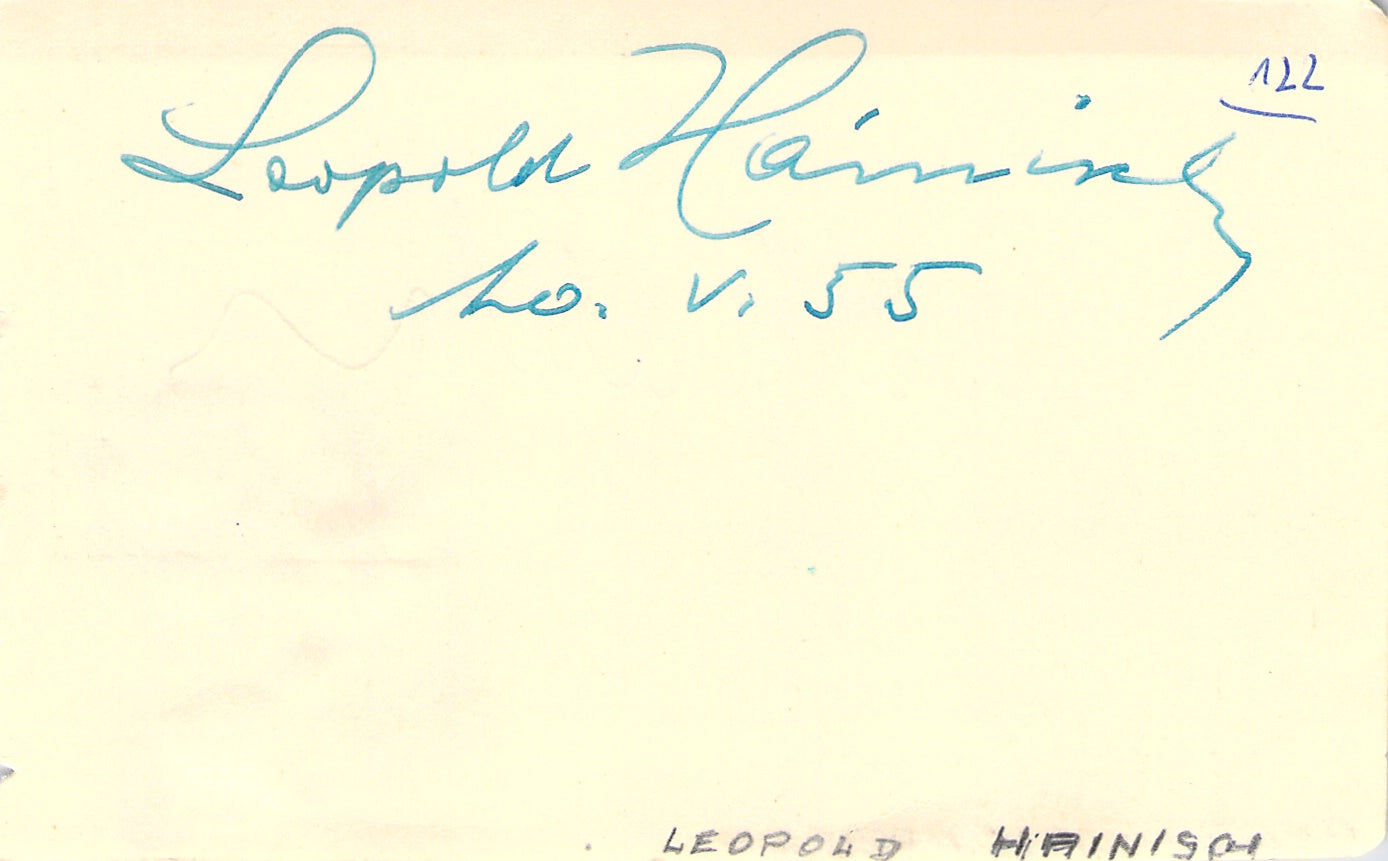 122
Leopold Hainisch
20. V. 55
LEOPOLD HAINISCH